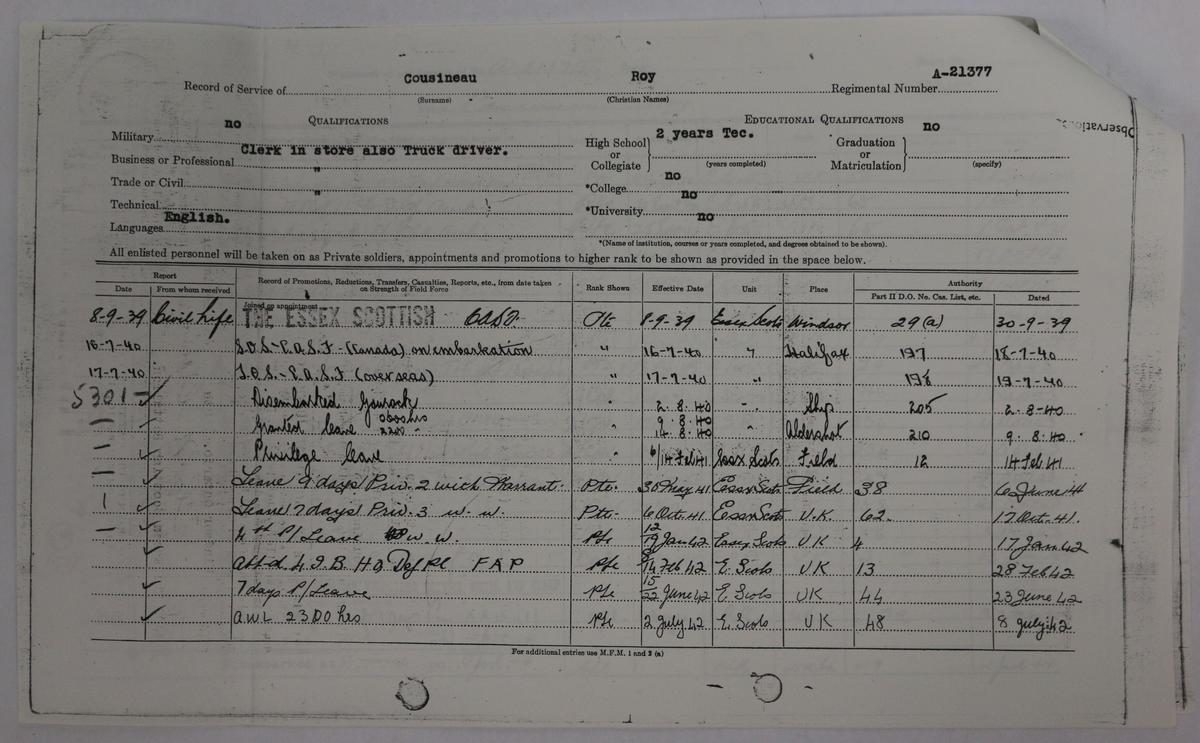 Record of Service of Cousineau Roy Regimental Number A-21377
(Surname) (Christian Names)
QUALIFICATIONS EDUCATIONAL QUALIFICATIONS
Military no
Business or Professional Clerk in store also Truck driver.
Trade or Civil "
Technical "
Languages English.
High School or Collegiate 2 years Tec. (years completed)
Graduation or Matriculation no (specify)
*College no
*University no
no
*(Name of institution, courses or years completed, and degrees obtained to be shown).
Observation
All enlisted personnel will be taken on as Private soldiers, appointments and promotions to higher rank to be shown as provided in the space below.
Report Record of Promotions, Reductions, Transfers, Casualties, Reports, etc., from date taken on Strength of Field Force Rank Shown Effective Date Unit Place Authority
Date From whom received Part II D.O. No. Cas. List, etc. Dated
Joined on appointment
8-9-39 Civil Life THE ESSEX SCOTTISH CASF Pte 8-9-39 Essex Scots Windsor 29(a) 30-9-39
16-7-40 S.O.S.-C.A.S.F-(Canada) on embarkation " 16-7-40 " Halifax 197 18-7-40
17-7-40 T.O.S.-C.A.S.F (overseas) " 17-7-40 " 198 19-7-40
5301 Disembarked Gourock " 2.8.40 " Ship 205 2-8-40
Granted leave 0600 hrs 2200 " " 9.8.40 14.8.40 " Aldershot 210 9.8.40
Privilege leave " 6/14 Feb 41 Essex Scots Field 12 14 Feb 41
Leave 9 days Priv. 2 with Warrant. Pte. 30 May 41 Essex Scots Field 38 6 June 41
1 Leave 7 days Priv. 3 w. w. Pte. 6 Oct. 41 Essex Scots U.K. 62 17 Oct. 41.
4th P/Leave W. W. Pte 12/19 Jan 42 Essex Scots UK 4 17 Jan 42
Att'd. 4 I.B. HQ Def Pl FAP Pte 14 Feb 42 E. Scots UK 13 28 Feb 42
7 days P/Leave Pte 15/22 June 42 E. Scots UK 44 23 June 42
AWL 2300 hrs Pte 2 July 42 E. Scots UK 48 8 July 42
For additional entries use M.F.M. 1 and 2 (a)